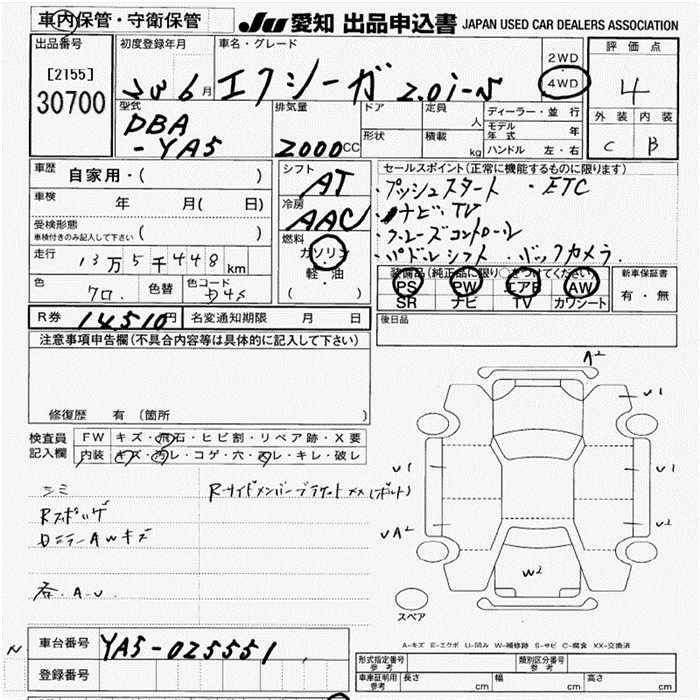 車内保管・守衛保管
JU 愛知 出品申込書 JAPAN USED CAR DEALERS ASSOCIATION
出品番号
[2155]
30700
初度登録年月
6月
車名・グレード
エクシーガ 2.0i-S
2WD
・
4WD
評価点
4
外装 内装
C B
型式
DBA
-YA5
排気量
2000CC
ドア
定員
人
形状
積載
kg
ディーラー・並行
モデル年式 年
ハンドル 左・右
車歴
自家用・( )
車検
年 月( 日)
受検形態
車検付きのみ記入して下さい ( )
走行
13万5千448km
色
クロ.
色替
色コード
R券
14,510円
名変通知期限 月 日
シフト
AT
冷房
AAC
燃料
ガソリン
・
軽・油
( )
セールスポイント(正常に機能するものに限ります)
・プッシュスタート ・ETC
・ナビ、TV
・クルーズコントロール
・パドルシフト ・バックカメラ.
装備品(純正品に限り○をつけてください)
PS PW エアB AW
SR ナビ TV カワシート
新車保証書
有・無
後日品
注意事項申告欄(不具合内容等は具体的に記入して下さい)
修復歴 有 (箇所 )
検査員
記入欄
FW キズ・飛石・ヒビ割・リペア跡・X要
内装 キズ・汚レ・コゲ・穴・スレ・キレ・破レ
シミ
Rサイドメンバーブラケットxx(ボルト)
Rスポハゲ
DミラーAWキズ
各.A.U.
A2
U1
U1
U1
UA2
U2
W2
スペア
A-キズ E-エクボ U-凹み W-補修跡 S-サビ C-腐食 XX-交換済
N
車台番号
YA5-025551
登録番号
形式指定番号
参考
類別区分番号
参考
車庫証明用
参考
長さ cm
幅 cm
高さ cm